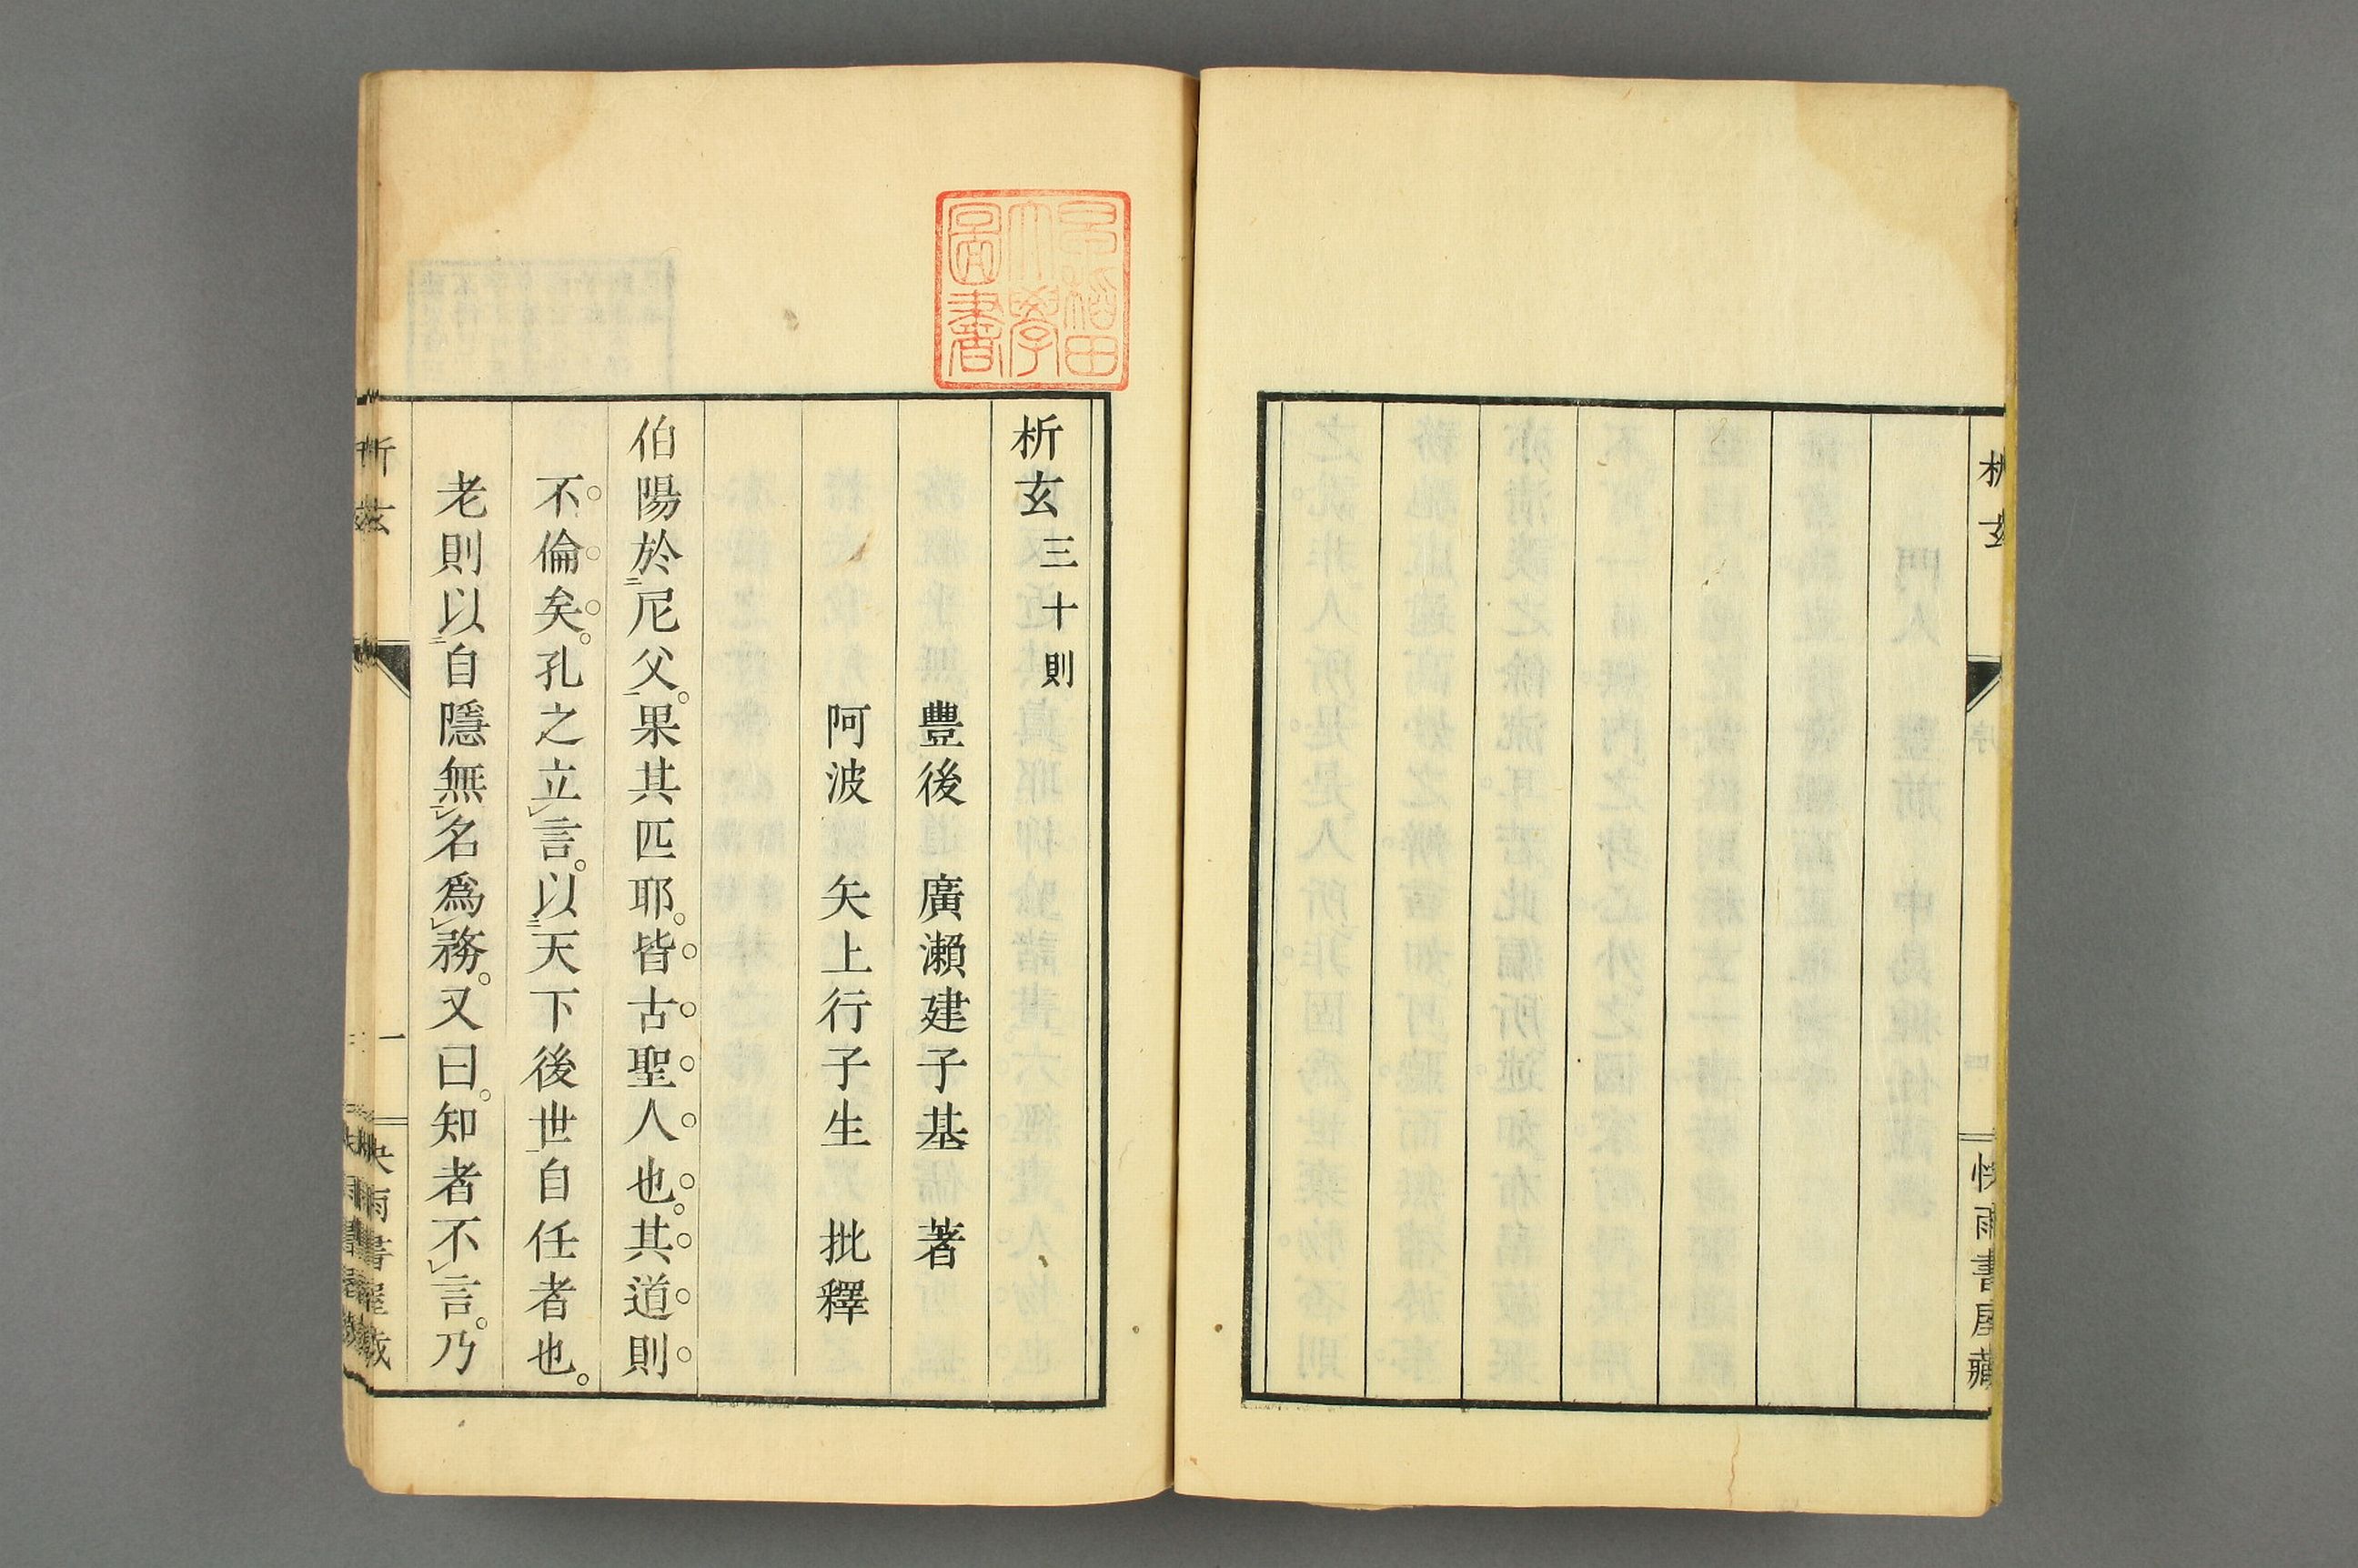 析玄
序
快雨書屋藏
早稲田
大學
圖書
析玄三十則
豊後 廣瀨建子基 著
阿波 矢上行子生 批釋
伯陽於尼父。果其匹耶。皆古聖人也。其道則
不倫矣。孔之立言。以天下後世自任者也。
老則以自隱無名爲務。又曰。知者不言。乃
析玄
一
快雨書屋藏